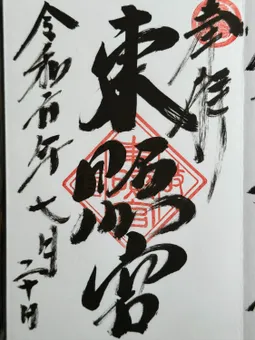 奉拝
東照宮
令和元年七月二十日